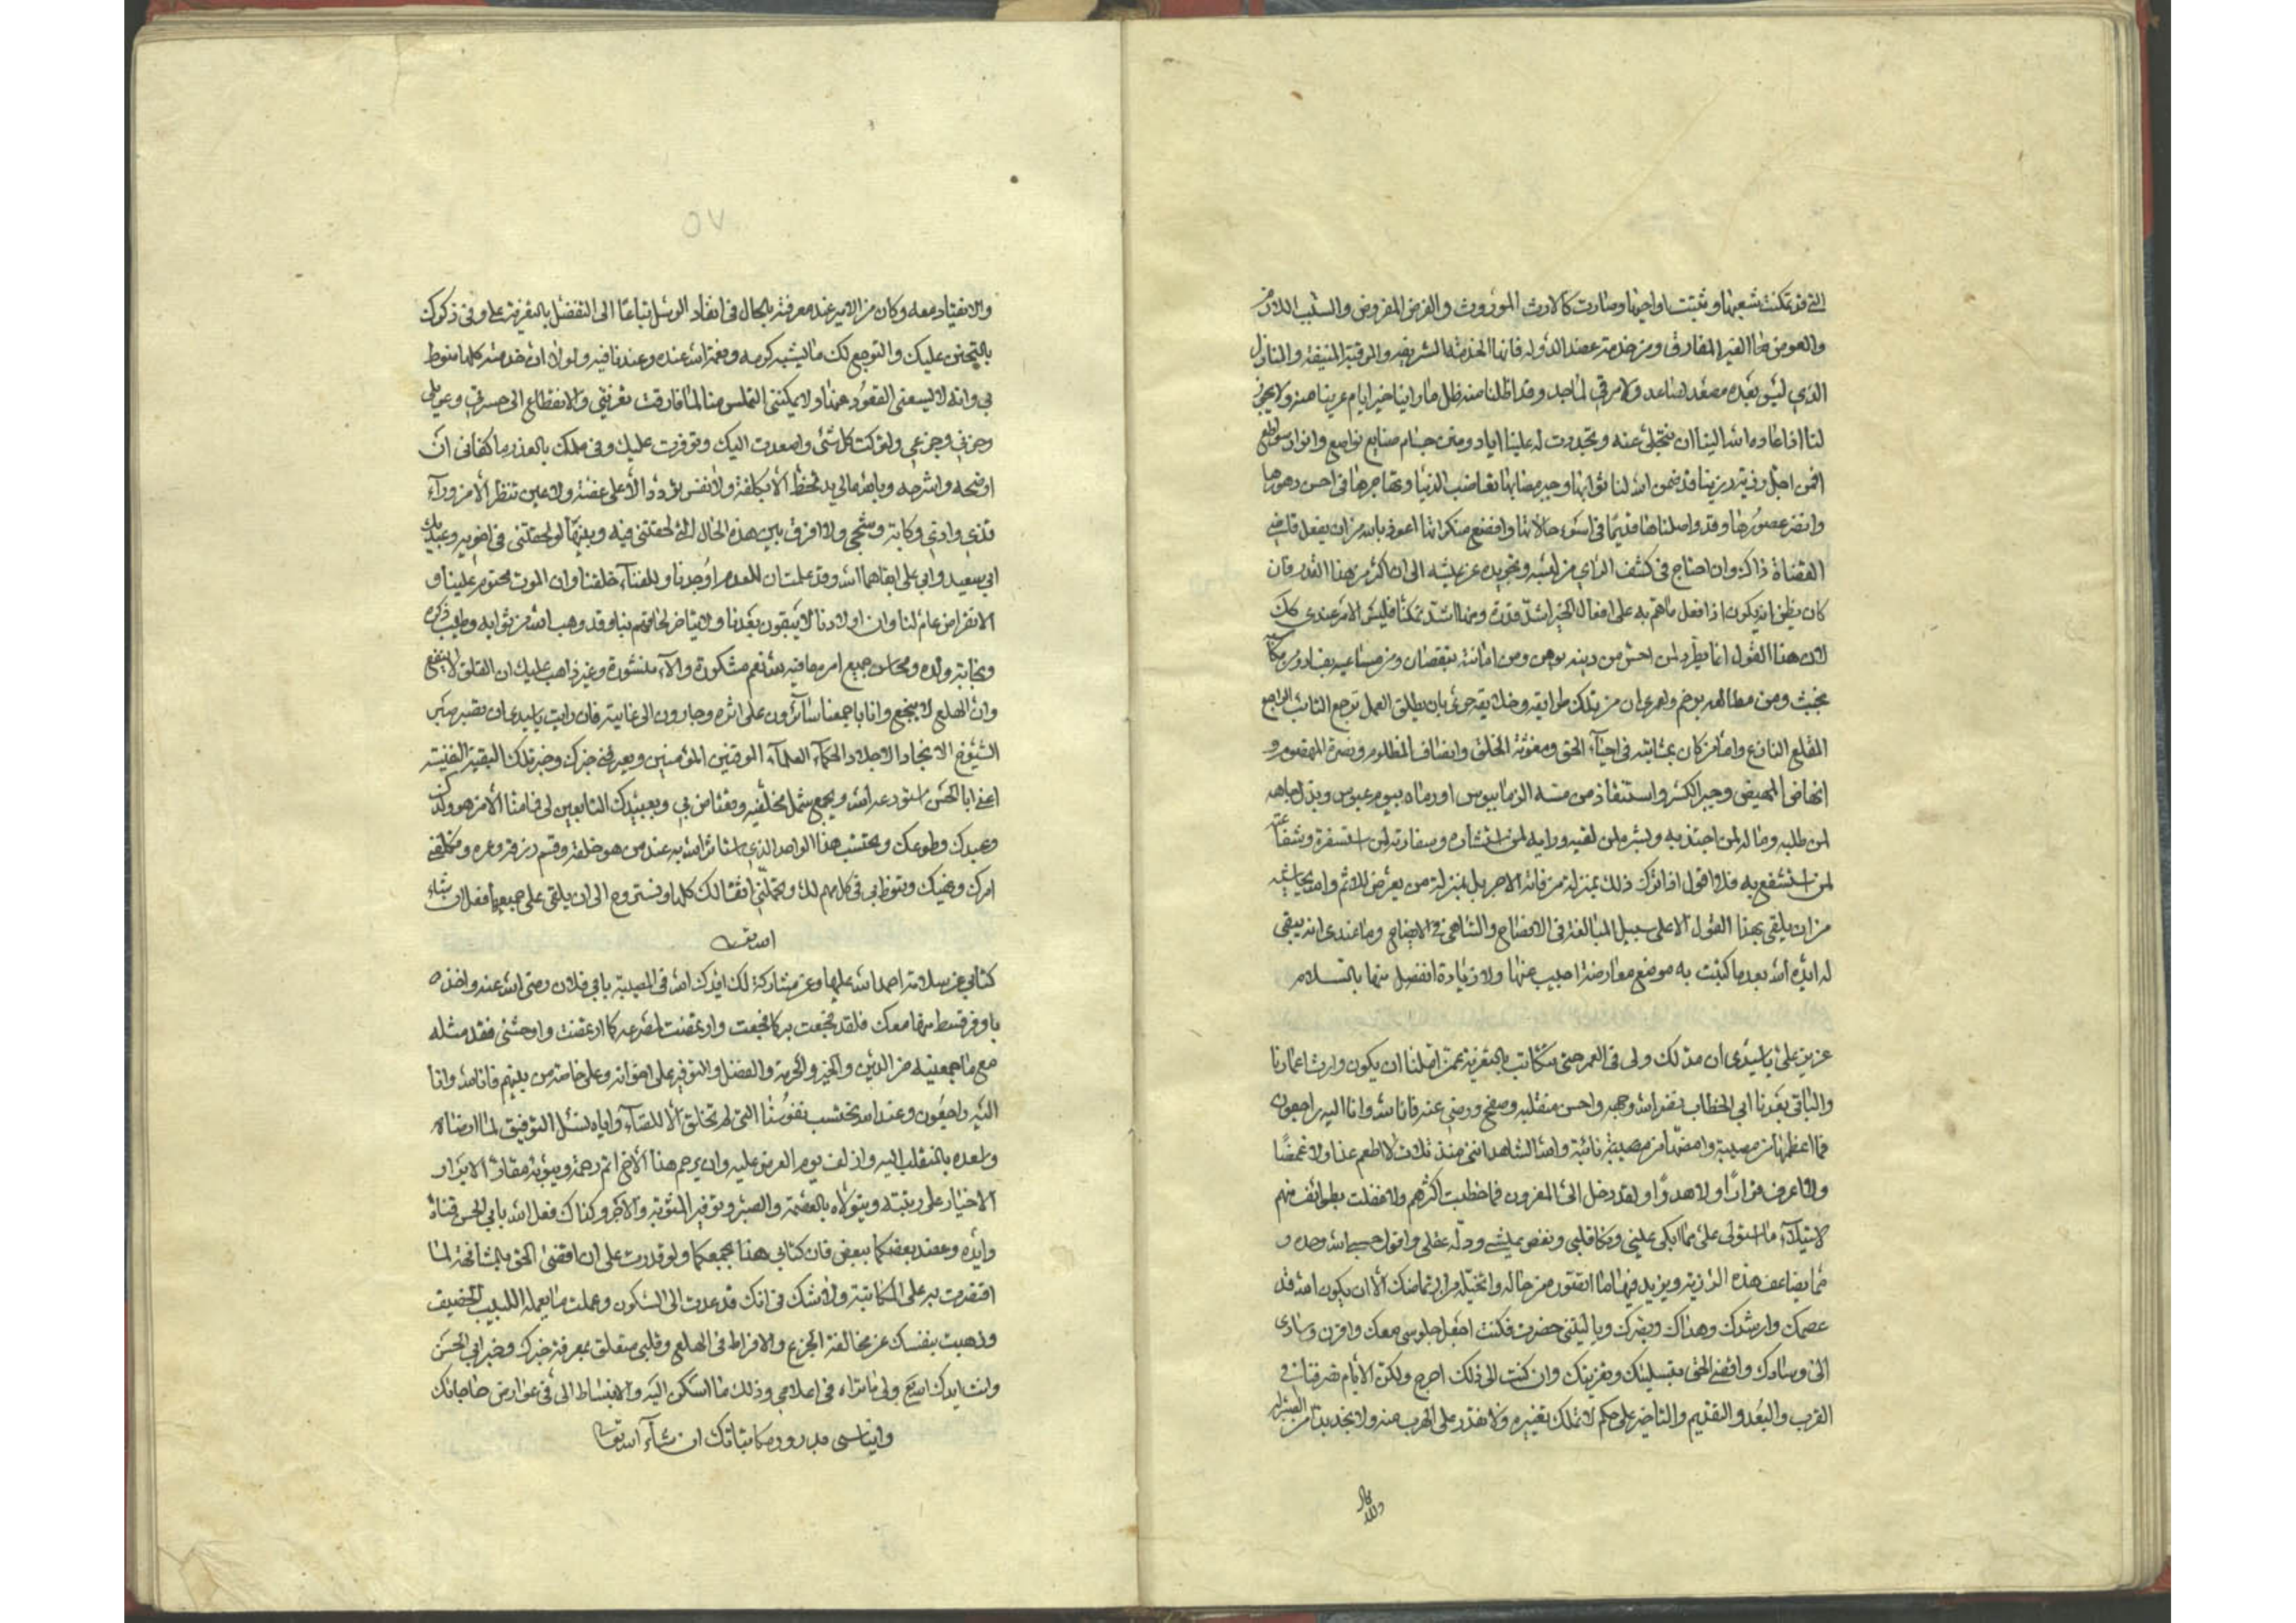 التي قد تمكنت شعبها وثبتت اواخيها وصارت كالارث الموروث والفرض المفروض والسبب اللازم
والعوض هذا الفير المفارق ومن خدمة عضد الدولة فانها الخدمة الشريفة والمرقبة المنيفة والمنازل
الذي ليس بعده مصعد لصاعد ولا مرقى لماجد وقد اظلنا منه ظل ما راينا خير ايام عرينا منه ولا يجوز
لنا اذا اعاده الله الينا ان نتخلى عنه وتجددت له علينا اياد ومنن جسام صنايع نواصع وانوار سواطع
فمن اجل رزية رزيناها قد ضمن الله لنا ثوابها وجبر مصابها نغاضب الدنيا ونهاجرها في احسن دهورها
وانضر عصورها وقد واصلناها قديما في اسوء حالاتها وافضع منكراتها اعوذ بالله من ان يفعل قاضي
القضاة ذاك وان احتاج في كشف الراي من لبسه وتجريده عن ملبسه الى ان اكثر من هذا القدر فان
كان يظن انه يكون اذا فعل ما هم به على افعال الخير اشد قدرة ومنها اشد تمكنا فليس الامر عندي كذلك
لان هذا القول انما يطرد لمن احس من دينه بوهن ومن امانته بنقصان ومن مساعيه بفساد ومن مكاسبه
بخبث ومن مطالعه بوخم ولعمري ان من تلك طرايقه وخلايقه حري بان يطلق العمل ترجع التائب الراجع
المقلع النازع واما من كان بمثابته في احياء الحق ومغوثة الخلق وانصاف المظلوم ونصرة المهضوم و
انهاض المهيض وجبر الكسر واستنقاذ من مسه الزمان ببوس او رماه بيوم عبوس وبذل جاهه
لمن طلبه وماله لمن اجتذبه وبشره لمن لقيه ورايه لمن استشاره وسفارته لمن استسفره وشفاعته
لمن استشفع به فلا اقول اذا ترك ذلك بمنزلة من فاته الاجر بل بمنزلة من يعرض للاثم والله يحاشيه
من ان يلقى بهذا القول الا على سبيل المبالغة في الافصاح والتناهي في الايضاح وما عندي انه يبقى
له ايده الله بعد ما كتبت به موضع معارضة اجيب عنها ولا زيادة انفصل منها بالسلام
عزيز علي يا سيدي ان مد لك ولي في العمر حتى نتكاتب بالتعزية عمن املنا ان يكون وارث اعمارنا
والباقي بعدنا ابي الخطاب نضر الله وجهه واحسن منقلبه وصفح ورضي عنه فانا لله وانا اليه راجعون
فما اعظمها من مصيبة وامضها من مصيبة نائبة والله الشاهد انني منذ ثلاث لا اطعم غذا ولا غمضا
ولا اعرف قرارا ولا هدوا ولقد دخل الي المعزون فما خطبت اكثرهم ولا حفلت بطوائف منهم
لاستيلاء ما استولى علي مما ابكى عيني ونكا قلبي ونغص عيشي ودله عقلي واقول حسبي الله وحده و
مما يضاعف هذه الرزية ويزيد فيها ما اتصور من حاله واتخيله من ارتماضك الا ان يكون الله قد
عصمك وارشدك وهداك وبصرك ويا ليتني حضرت فكنت اجعل جلوسي معك واقرن وسادي
الى وسادك واقضي الحق بتسليتك وتعزيتك وان كنت الى ذلك احوج ولكن الايام تصرفنا في
القرب والبعد والتقديم والتاخير على حكم لا نملك تغييره ولا نقدر على الهرب منه ولا نجد بدا من الصبر له
٥٧
والانقياد معه وكان من الامير عند معرفته بالحال في انفاذ الرسل تباعا الى التفضل بالتعزية علي وفي ذكرك
بالتحنن عليك والتوجع لك ما يشبه كرمه ونعمة الله عنده وعندنا فيه ولولا ان خدمته كلها منوط
بي وانه لا يسعني القعود عنها ولا يمكنني التملس منها لما فارقت تعزيتي والانقطاع الى حسرتي وعويلي
وحزني وجزعي ولتركت كل شئ واصعدت اليك وتوفرت عليك وفي علمك بالعذر ما كفاني ان
اوضحه واشرحه وبالله مالي يد تحفظ الا بكلفة ولا نفس يردد الا على غصة ولا عين تنظر الا من وراء
قذي واذي وكابة وشجي ولا فرق بين هذه الحال التي لحقتني فيه وبينها لو لحقتني في اخويه وعبديك
ابي سعيد وابي علي ابقاهما الله وقد علمت ان للعدم اوجدنا وللفناء خلقنا وان الموت محتوم علينا و
الانقراض عام لنا وان اولادنا لا يبقون بعدنا ولا يتاخر لحاقهم بنا وقد وهب الله من ثوابه وطيب ذكره
ونجابة ولده ومحاسن جميع امره ما فيه لله نعم مشكورة والاء منشورة وغير ذاهب عليك ان القلق لا ينفع
وان الهلع لا ينجع وانا باجمعنا سائرون على اثره وجارون الى غايته فان رايت يا سيدي ان تصبر صبر
الشيوخ الانجاد الاجلاد الحكماء العلماء الموقنين المؤمنين وتعرفني خبرك وخبر تلك البقية النفيسة
اعني ابا الحسن استودعه الله ويجمع شمل مخلفيه وتعتاض بي وبعبيدك التابعين لي فامثل الامر هو ولدك
وعبدك وطوعك وتحتسب هذا الواحد الذي استاثر الله به عند من هو خلقه وقسم رزقه وعمره وتكلفني
امرك ونهيك وتتوظفي في كل مهم لك وتحملني اثقالك كلها وتستروح الى ان يلقى على جميعها فعل ان شاء
الله تعالى
كتابي عن سلامة احمد الله عليها وعن مشاركة لك ايدك الله في المصيبة بابي فلان رضي الله عنه واخذه
باوفر قسط منها معك فلقد فجعت به كما فجعت وارتمضت لمصرعه كما ارتمضت واوحشني فقد مثله
مع ما جمعنيه من الدين والخير والحرمة والفضل والتوفير على اخوانه وعلى خاصة من بينهم فانا لله وانا
اليه راجعون وعند الله نحتسب نفوسنا التي لم تخلق الا للفناء واياه نسئل التوفيق لما ارضاه
واسعده بالمنقلب اليه وازلف يوم العرض عليه وان يرحم هذا الاخ اتم رحمة ويبوئه مقار الابرار
الاخيار على رتبته ويتولاه بالعصمة والصبر وتوفير المثوبة والاجر وكذاك فعل الله بابي الحسن قناه
وايده وعضد بعضكما ببعض فان كتابي هذا يجمعكما ولو قدرت على ان اقضي الحق بالمشافهة لما
اقتصرت به على المكاتبة ولا اشك في انك قد عدت الى السكون وعملت ما يعمله اللبيب الحصيف
وذهبت بنفسك عن مخالفة الجزع والافراط في الهلع وقلبي متعلق بمعرفة خبرك وخبر ابي الحسن
وانت ايدك الله تع ولي ما تراه في اعلامي وذلك ما اسكن اليه والانبساط الي في عوارض حاجاتك
وايناسي بدرور مكاتباتك ان شاء الله تعالى